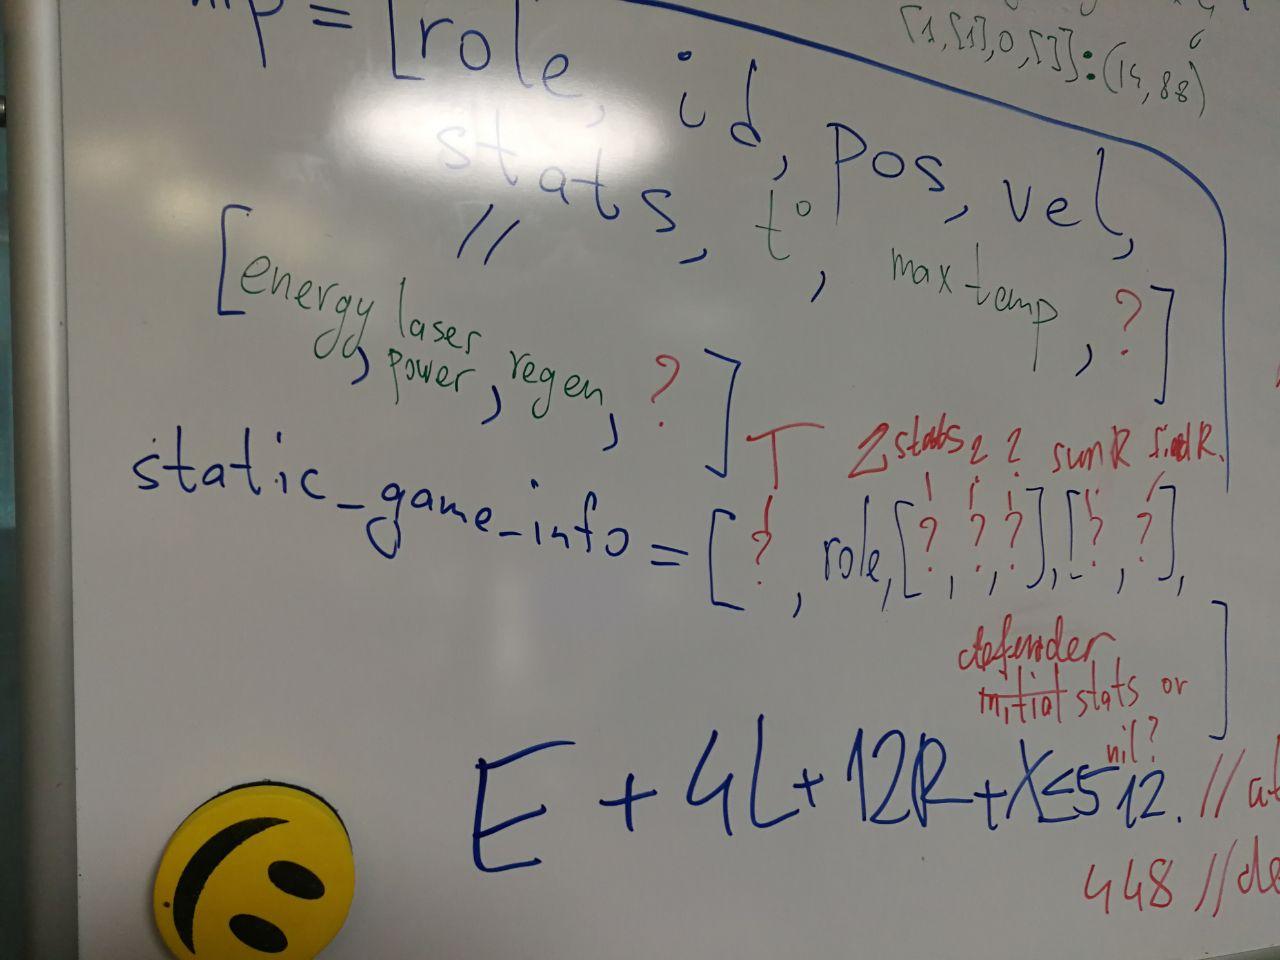 [1,[1],0,[]]:(14,88)
= [role, id, pos, vel,
stats, t°, max temp, ?]
//
[energy, laser power, regen, ?]
static_game_info = [?, role, [?, ?, ?], [?, ?],
T stats ? ? sun R
defender
initial stats or
nil?
]
E + 4L + 12R + X ≤ 512. //
448 //